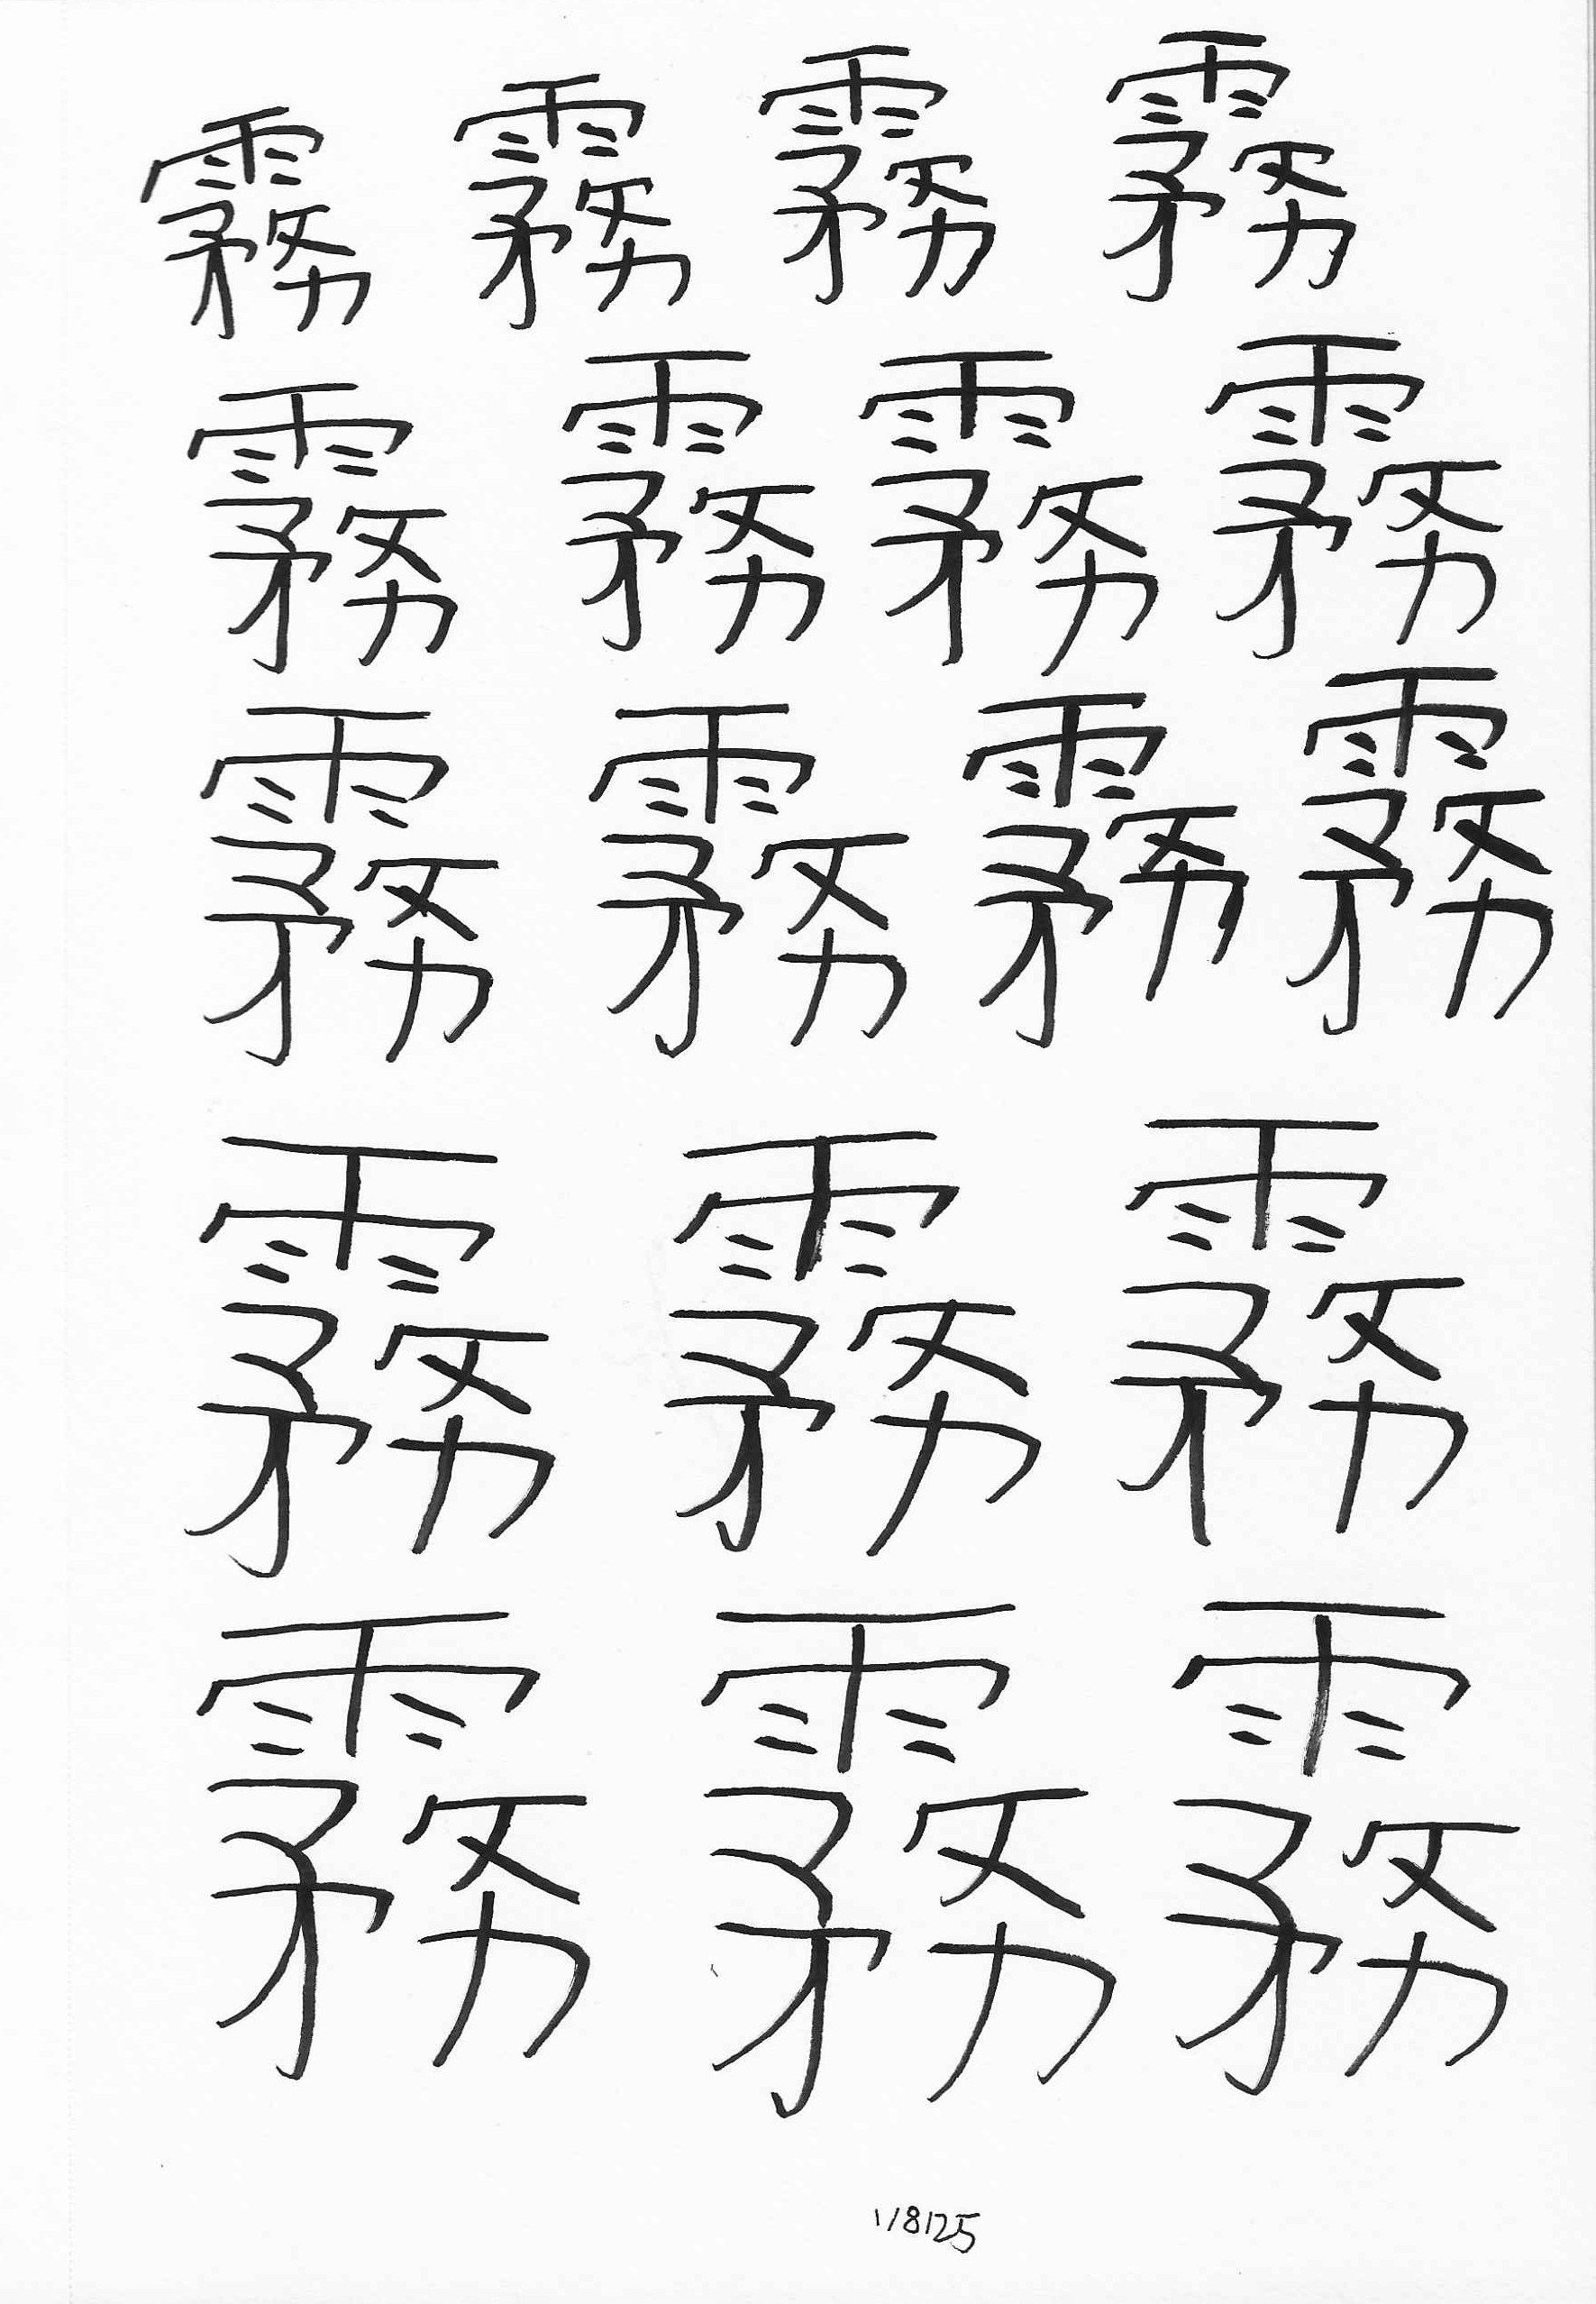 霧霧霧霧
霧霧霧霧
霧霧霧霧
霧霧霧
霧霧霧
1/8/25